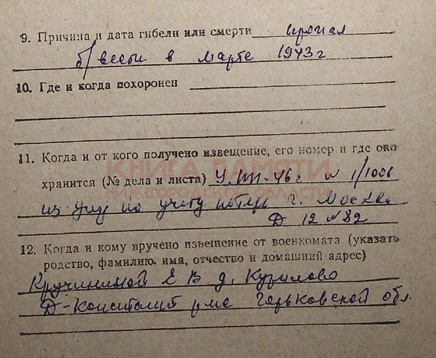 9. Причина и дата гибели или смерти пропал
б/вести в марте 1943 г
10. Где и когда похоронен
11. Когда и от кого получено извещение, его номер и где оно
хранится (№ дела и листа) У.ІІІ-46г N 1/1006
из упр по учету потерь г. Москва
Д 12 N 82
12. Когда и кому вручено извещение от военкомата (указать
родство, фамилию, имя, отчество и домашний адрес)
Кручининой Е В д. Курилово
Д-Константин р-на Горьковской обл.